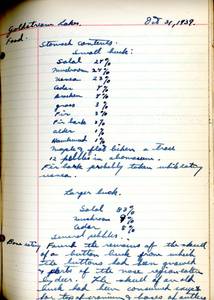 Goldstream Lakes.
Oct 31, 1939.
Food.
Stomach contents.
Small buck:
Salal 24%
Mushroom 24%
Usnea 23%
Cedar 8%
Bracken 8%
grass 3%
Fir 3%
Fir bark 3%
alder 1%
Hemlock 1%
Maple & flat lichen a trace
12 pebbles in abomasum.
Fir bark probably taken while eating
usnea.
Larger buck.
Salal 83%
Mushroom 9%
Cedar 8%
Several pebbles.
Bone eating
Found the remains of the skull
of a button buck from which
the buttons had been gnawed
& parts of the nose region eaten
by deer. The skull of an old
buck had been consumed except
for